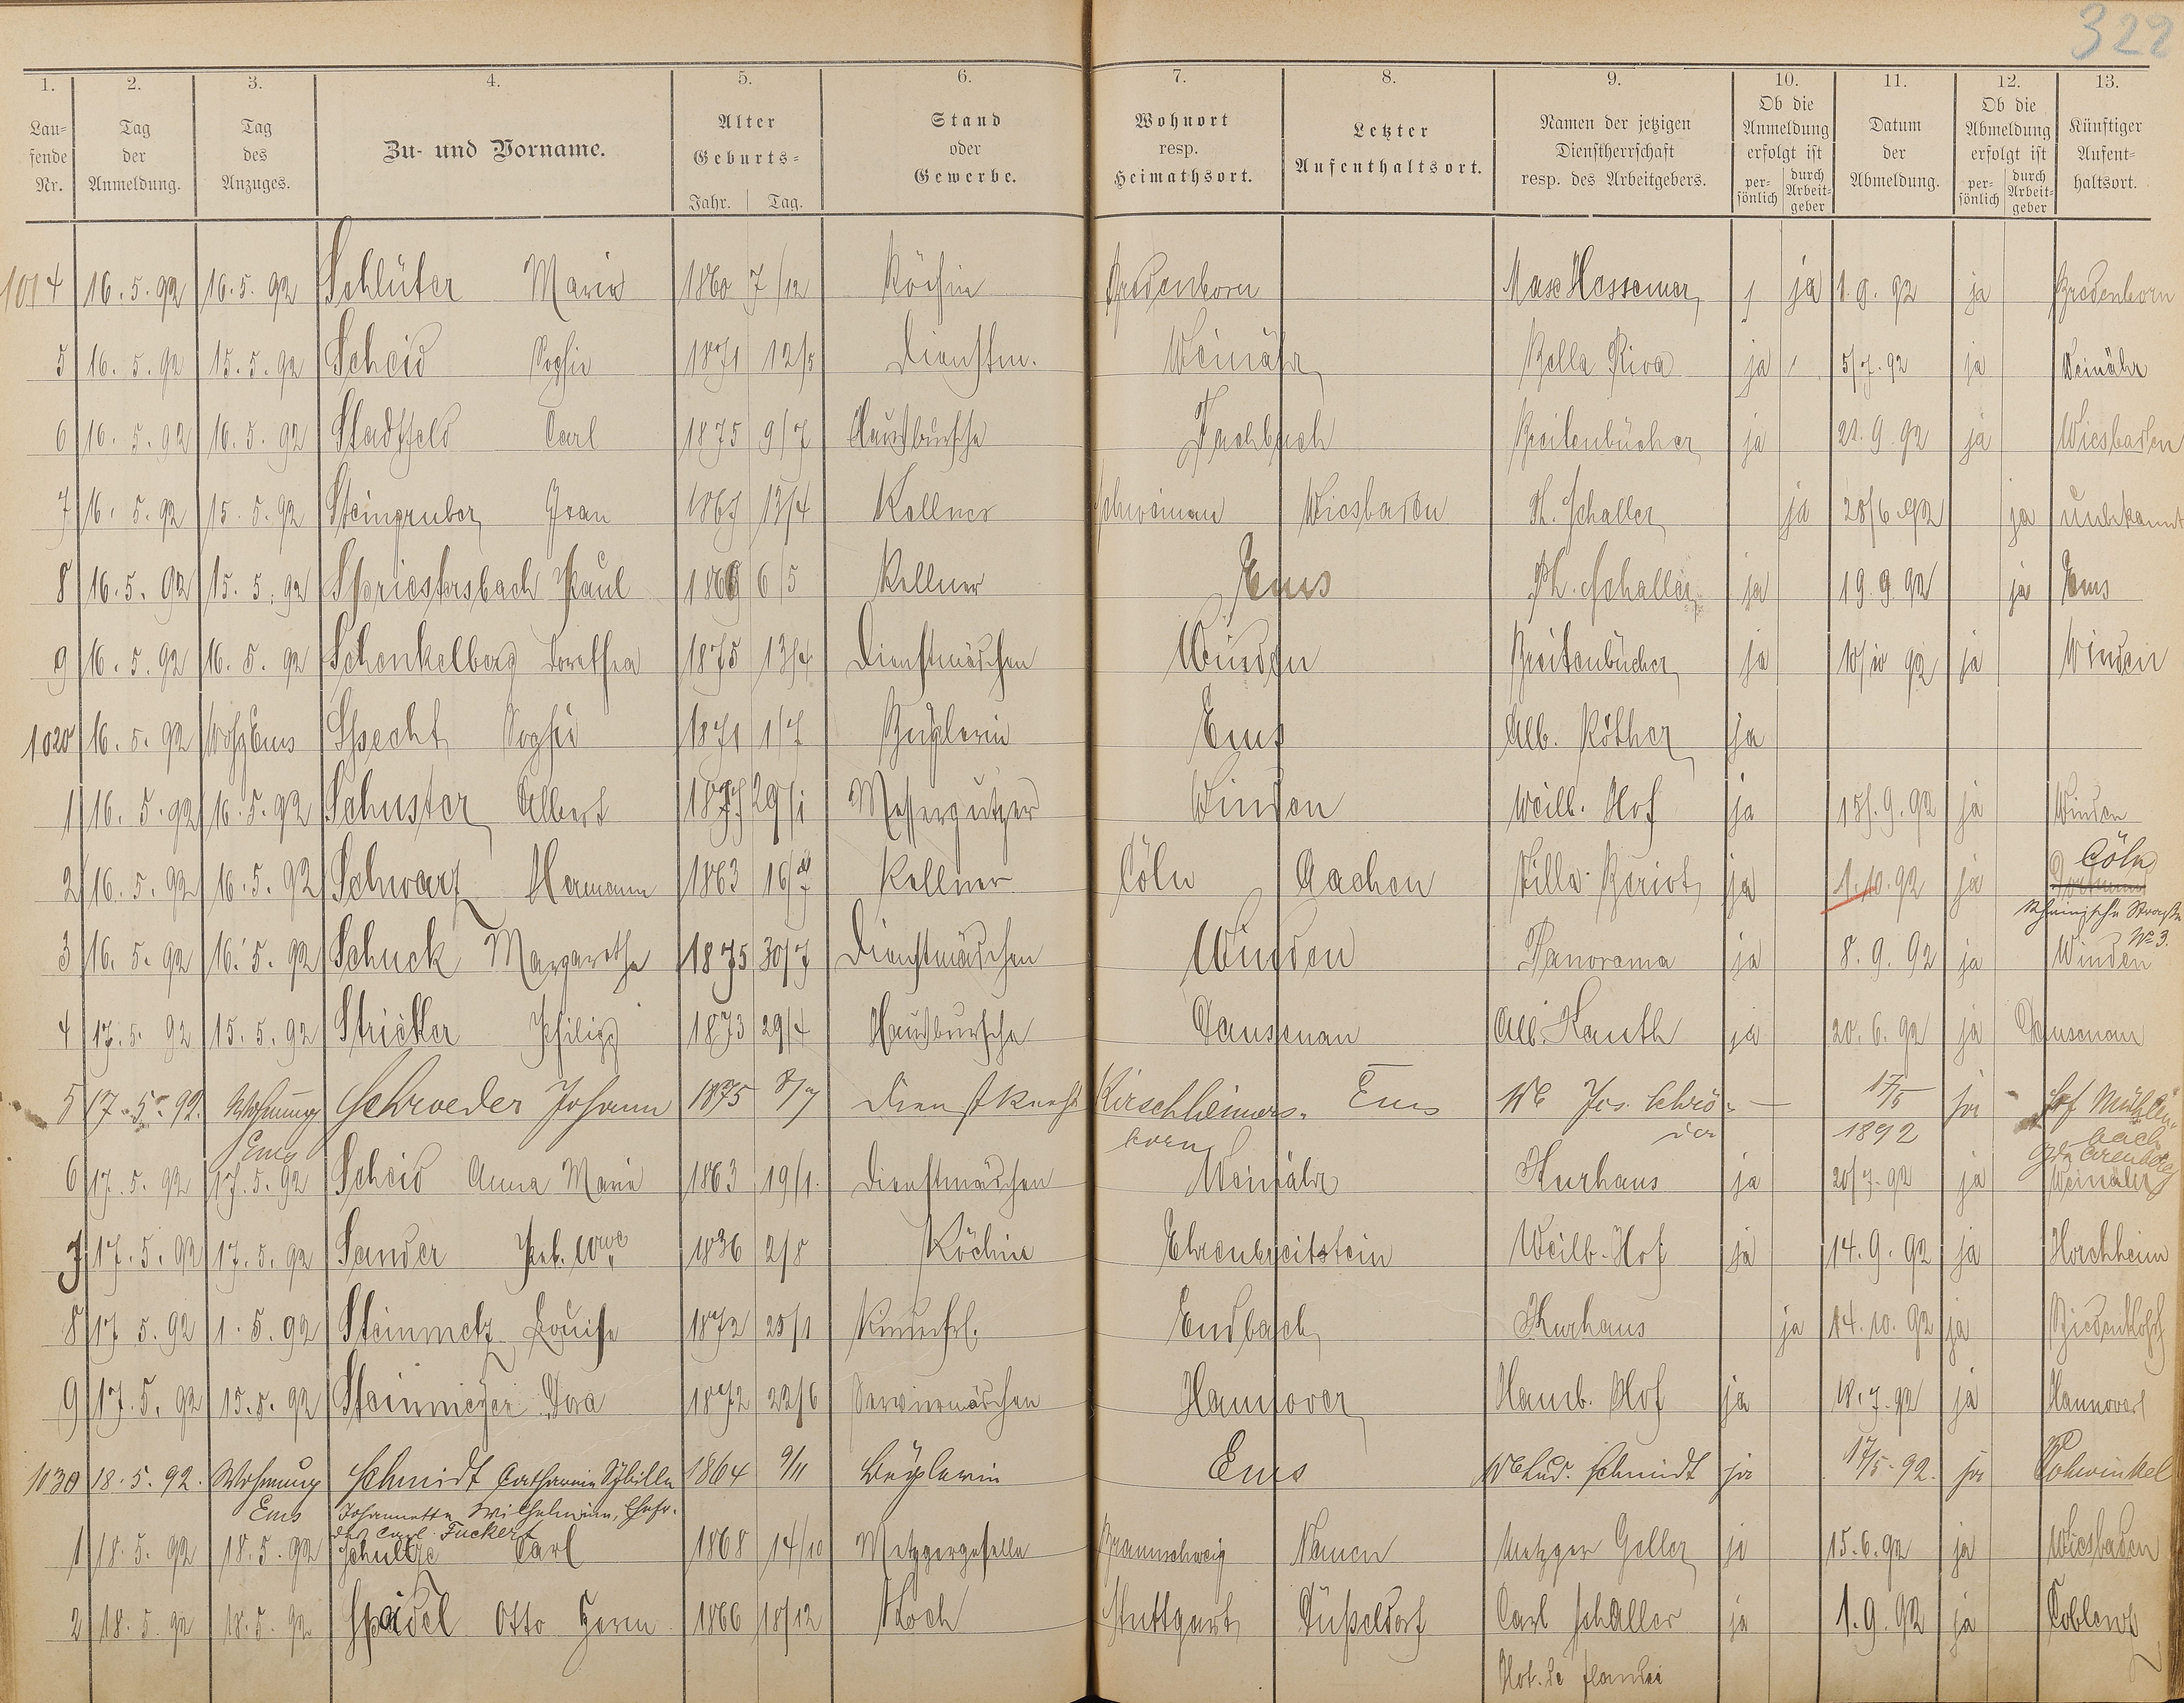 322
1. 2. 3. 4. 5. 6. 7. 8. 9. 10. 11. 12. 13.
Lau=
fende
Nr.
Tag
der
Anmeldung.
Tag
des
Anzuges.
Zu- und Vorname.
Alter
Geburts=
Jahr. Tag.
Stand
oder
Gewerbe.
Wohnort
resp.
Heimathsort.
Letzter
Aufenthaltsort.
Namen der jetzigen
Dienstherrschaft
resp. des Arbeitgebers.
Ob die
Anmeldung
erfolgt ist
per-
sönlich
durch
Arbeit-
geber
Datum
der
Abmeldung.
Ob die
Abmeldung
erfolgt ist
per-
sönlich
durch
Arbeit-
geber
Künftiger
Aufent=
haltsort.
1014 16.5.92 16.5.92 Schlüter Maria 1860 7/12 Köchin Bredenborn Max Hassemer ja 1.9.92 ja Bredenborn
5 16.5.92 15.5.92 Scheid Sophie 1871 12/5 Dienstm. Weinähr Bella Riva ja 5/7.92 ja Weinähr
6 16.5.92 16.5.92 Stadtfeld Carl 1875 9/7 Hausbursche Fachbach Breitenbücher ja 22.9.92 ja Wiesbaden
7 16.5.92 15.5.92 Steingruber Jean 13/4 Kellner Wiesbaden Ph. Schaller ja 28/6.92 ja unbekannt
8 16.5.92 15.5.92 Spriestersbach Paul 6/5 Kellner Ems Ph. Schaller ja 19.9.92 ja Ems
9 16.5.92 16.5.92 Schenkelberg Dorethea 1875 13/4 Dienstmädchen Winden Breitenbücher ja 10/10 92 ja Winden
1020 16.5.92 Wohg Ems Specht Sophie 1871 1/7 Büglerin Ems Alb. Köther ja
1 16.5.92 16.5.92 Schuster Albert 29/1 Messerputzer Winden Weilb. Hof ja 15/.9.92 ja Winden
2 16.5.92 16.5.92 Schwarz Hermann 1863 Kellner Cöln Aachen Villa Beriot ja 1.10.92 ja Cöln
Rheinische Strasse
№ 3.
3 16.5.92 16.5.92 Schuck Margarethe 1875 30/7 Dienstmädchen Winden Panorama ja 8.9.92 ja Winden
4 17.5.92 15.5.92 Stricker Philipp 1873 29/4 Hausbursche Dausenau Alb. Kauth ja 20.6.92 ja Dausenau
5 17.5.92. Wohnung Schroeder Johann 1875 8/7 Dienstknecht Kirschheimers- Ems Wb Jos. Schrö- — 17/5 ja Hof Mühlen-
Ems born der 1892 bach
Arenberg
6 17.5.92 17.5.92 Scheid Anna Maria 1863 19/1. Dienstmädchen Weinähr Kurhaus ja 20/7.92 ja Weinähr
7 17.5.92 17.5.92 Sander Wwe 1836 2/8 Köchin Ehrenbreitstein Weilb. Hof ja 14.9.92 ja Horchheim
8 17.5.92 1.5.92 Steinmetz Louise 1872 25/1 Endbach Kurhaus ja 14.10.92 ja Biedenkopf
9 17.5.92 15.5.92 Steinmeyer Dora 1872 22/6 Servirmädchen Hannover Hamb. Hof ja 18.7.92 ja Hannover
1030 18.5.92. Wohnung Schmidt Catharina Sybilla 1864 9/11 Büglerin Ems Wb Lud. Schmidt ja 17/5.92. ja Vohwinkel
Ems Johannetta Wilhelmine, Ehefr.
des Carl Fuckert
1 18.5.92 18.5.92 Schultze Carl 1868 14/10 Metzgergeselle Braunschweig Metzger Geller ja 15.6.92 ja Wiesbaden
2 18.5.92 18.5.92 Speidel Otto Herm 1866 18/12 Koch Stuttgart Düßeldorf Carl Schaller ja 1.9.92 ja Coblenz
Hot. de